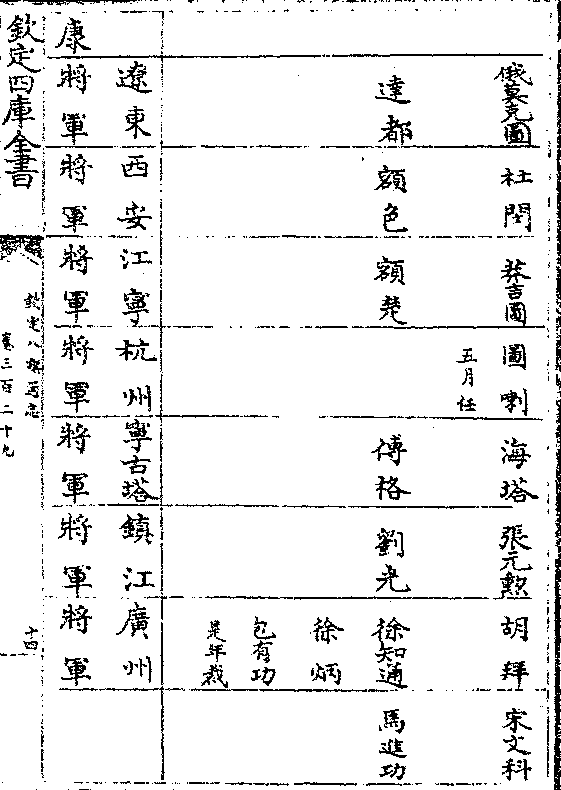 俄莫克圖
杜閔
莽吉圖
圖喇
五月任
海塔
張元勲
胡拜
宋文科
達都
額色
額楚
傅格
劉光
徐知通
馬進功
徐炳
包有功
是年裁
遼東將軍
西安將軍
江寧將軍
杭州將軍
寧古塔將軍
鎮江將軍
廣州將軍
康
欽定四庫全書
欽定八旗通志
卷三百二十九
十四